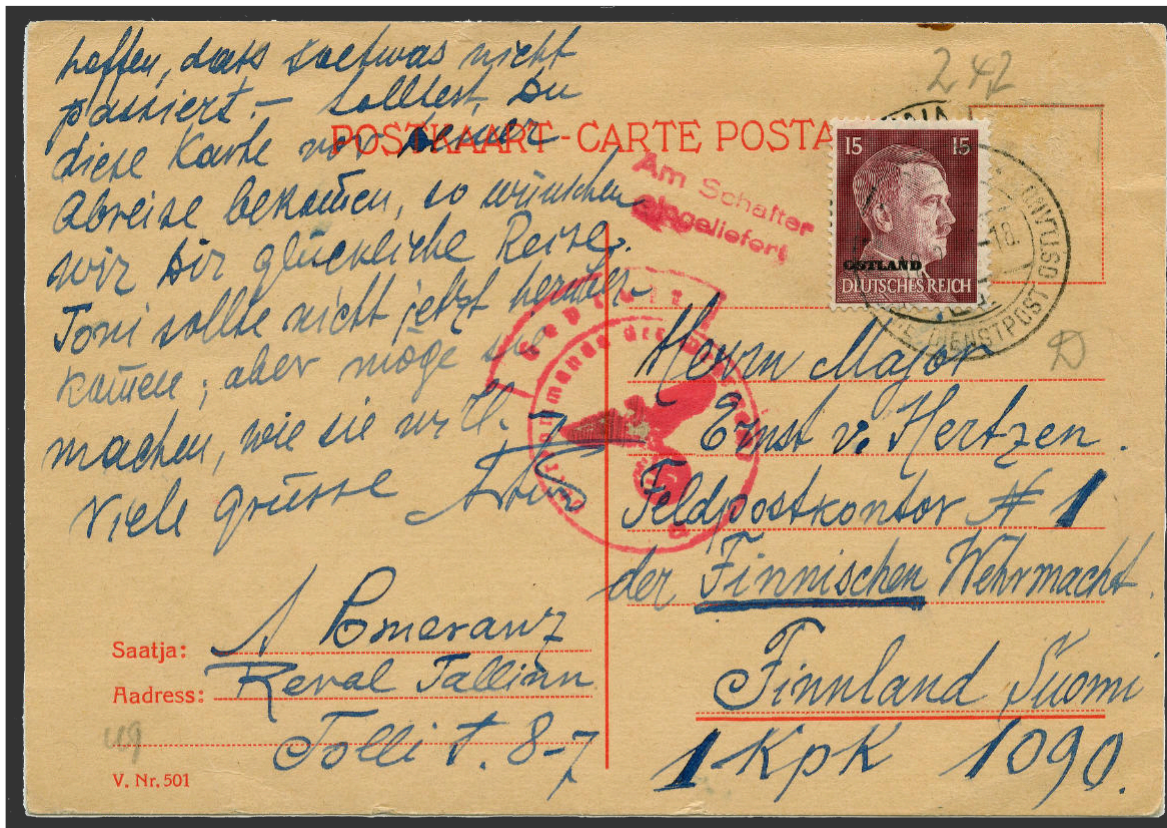 hoffen, dass soetwas nicht
passiert. – Solltest Du
diese Karte vor deiner
Abreise bekommen, so wünschen
wir Dir glückliche Reise.
Toni sollte nicht jetzt herüber-
kommen; aber möge sie
machen, wie sie will.
Viele grüsse
242
POSTKAART - CARTE POSTA
Am Schalter
eingeliefert
15 15
OSTLAND
DEUTSCHES REICH
DIENSTPOST OSTLAND
Geprüft
Oberkommando der Wehrmacht
d
Herrn Major
Ernst v. Hertzen.
Feldpostkontor # 1
der Finnischen Wehrmacht.
Finnland Suomi
1 KpK 1090.
Saatja: A Pomeranz
Aadress: Reval Tallinn
Tolli t. 8-7
V. Nr. 501